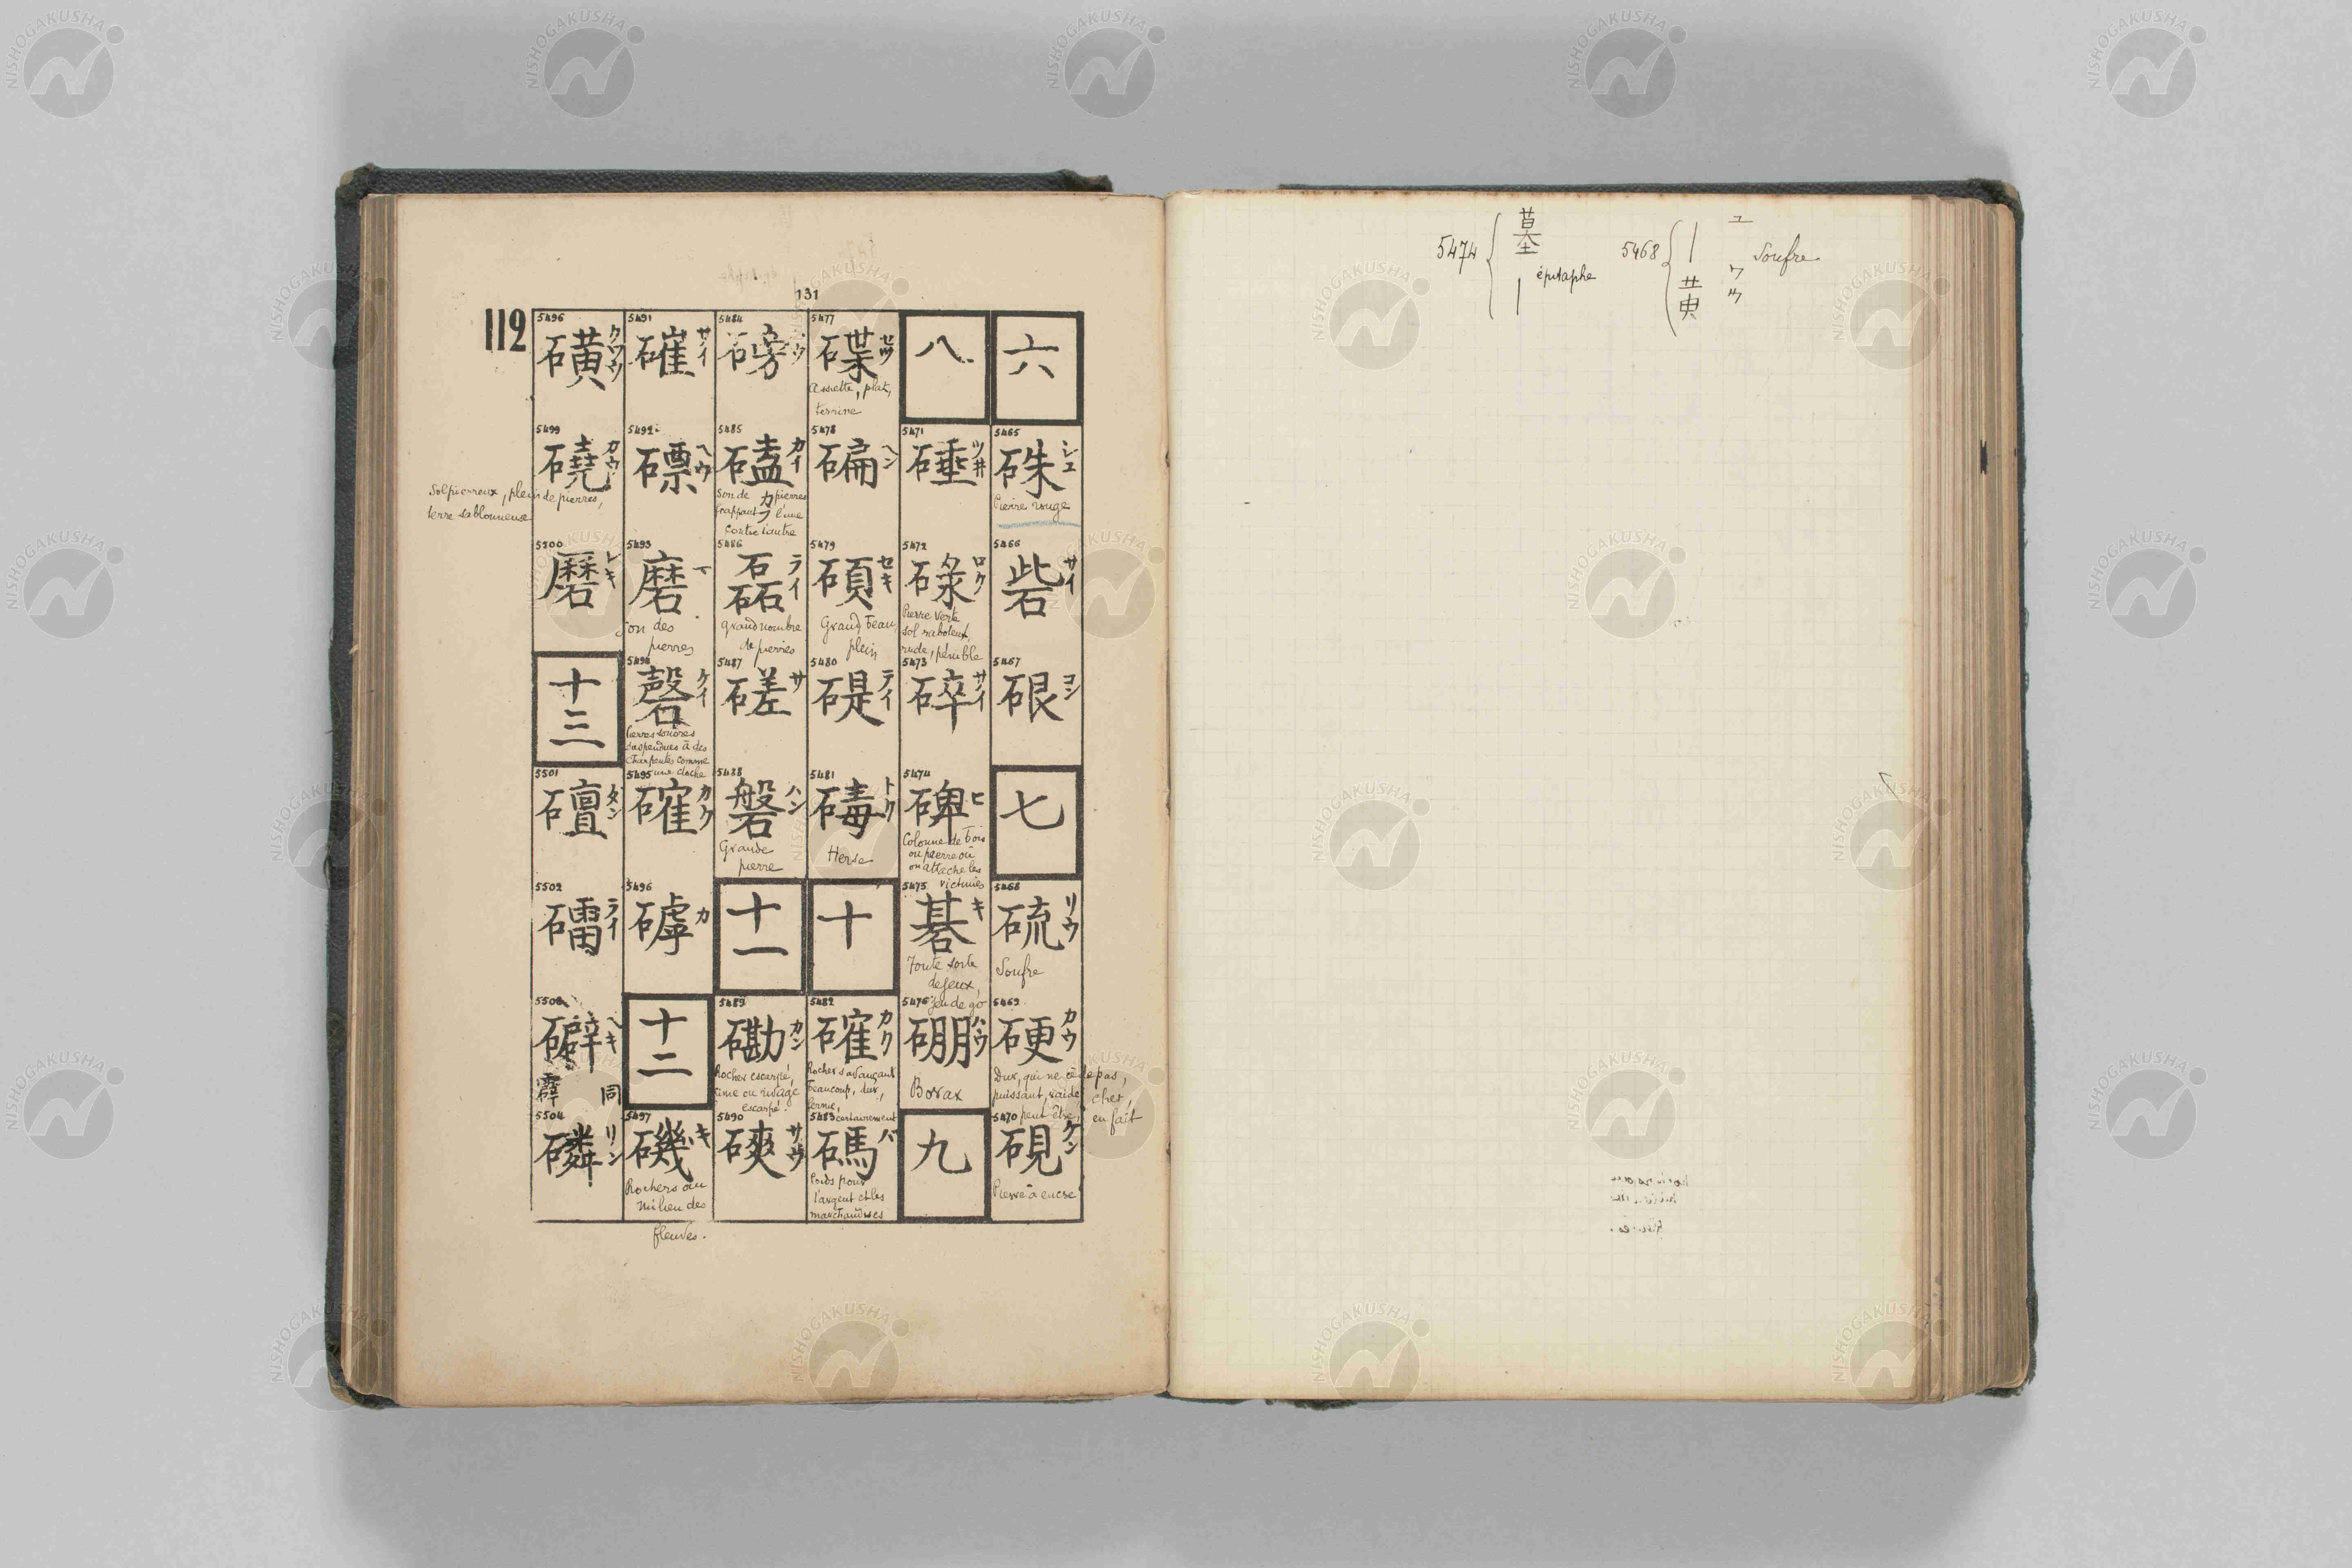 131
112
六
5465
硃 シユ
Pierre rouge
5466
砦 サイ
5467
硍 コン
七
5468
硫 リウ
Soufre
5469
硬 カウ
Dur, qui ne cède pas,
puissant, raide, cher,
peut être, en fait
5470
硯 ケン
Pierre à encre
八
5471
硾 ツヰ
5472
碌 ロク
Pierre verte
sol raboteux,
rude, pénible
5473
碎 サイ
5474
碑 ヒ
Colonne de bois
ou pierre où
on attache les
victimes
5475
碁 キ
Toute sorte
de jeux,
jeu de go
5476
硼 ハウ
Borax
九
5477
碟 セツ
Assiette, plat,
terrine
5478
碥 ヘン
5479
碩 セキ
Grand, beau,
plein
5480
碮 テイ
5481
碡 トク
Herse
十
5482
確 カク
Rocher s'avançant
beaucoup, dur,
ferme,
certainement
5483
碼 バ
Poids pour
l'argent et les
marchandises
5484
磅
5485
磕 カイ
カフ
Son de pierres
frappant l'une
contre l'autre
5486
磊 ライ
grand nombre
de pierres
5487
磋 サ
5488
磐 ハン
Grande
pierre
十一
5489
磡 カン
Rocher escarpé,
cime ou rivage
escarpé.
5490
磢 サウ
5491
磪 サイ
5492
磦 ヘウ
5493
磨
Son des
pierres
5494
磬 ケイ
Pierres sonores
suspendues à des
charpentes comme
une cloche
5495
確 カク
5496
磍 カ
十二
5497
磯 キ
Rochers au
milieu des
fleuves.
5496
磺 クワウ
5499
磽 カウ
Sol pierreux, plein de pierres,
terre sablonneuse
5500
磿 レキ
十三
5501
䃪 タン
5502
礌 ライ
礔 ヘキ
霹 同
5504
磷 リン
5474 { 墓
| épitaphe
5468 { | ユ
黄 ワウ
Soufre
NISHOGAKUSHA